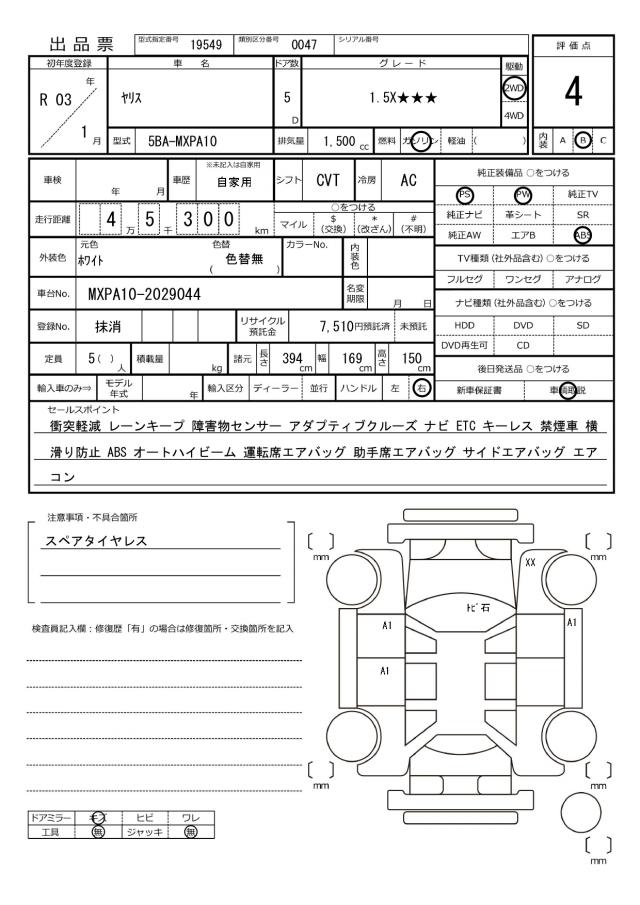 出品票 型式指定番号 19549 類別区分番号 0047 シリアル番号
初年度登録 車名 ドア数 グレード 駆動 評価点
R 03 年 1 月 ﾔﾘｽ 5 D 1.5X★★★ 2WD 4WD 4
型式 5BA-MXPA10 排気量 1,500 cc 燃料 ガソリン 軽油 ( ) 内装 A B C
車検 年 月 車歴 ※未記入は自家用 自家用 シフト CVT 冷房 AC 純正装備品 ○をつける
PS PW 純正TV
走行距離 4 万 5 千 300 km ○をつける
マイル $ (交換) * (改ざん) # (不明)
純正ナビ 革シート SR
純正AW エアB ABS
外装色 元色 ﾎﾜｲﾄ 色替 ( 色替無 ) カラーNo. 内装色
TV種類 (社外品含む) ○をつける
フルセグ ワンセグ アナログ
車台No. MXPA10-2029044 名変期限 月 日
ナビ種類 (社外品含む) ○をつける
登録No. 抹消 リサイクル預託金 7,510円預託済 未預託
HDD DVD SD
DVD再生可 CD
定員 5 ( ) 人 積載量 kg 諸元 長さ 394 cm 幅 169 cm 高さ 150 cm
後日発送品 ○をつける
輸入車のみ⇒ モデル年式 年 輸入区分 ディーラー 並行 ハンドル 左 右
新車保証書 車輌取説
セールスポイント
衝突軽減 レーンキープ 障害物センサー アダプティブクルーズ ナビ ETC キーレス 禁煙車 横
滑り防止 ABS オートハイビーム 運転席エアバッグ 助手席エアバッグ サイドエアバッグ エア
コン
注意事項・不具合箇所
スペアタイヤレス
検査員記入欄：修復歴「有」の場合は修復箇所・交換箇所を記入
mm
mm
XX
ﾄﾋﾞ石
A1
A1
A1
mm
mm
mm
ドアミラー キズ ヒビ ワレ
工具 無 ジャッキ 無